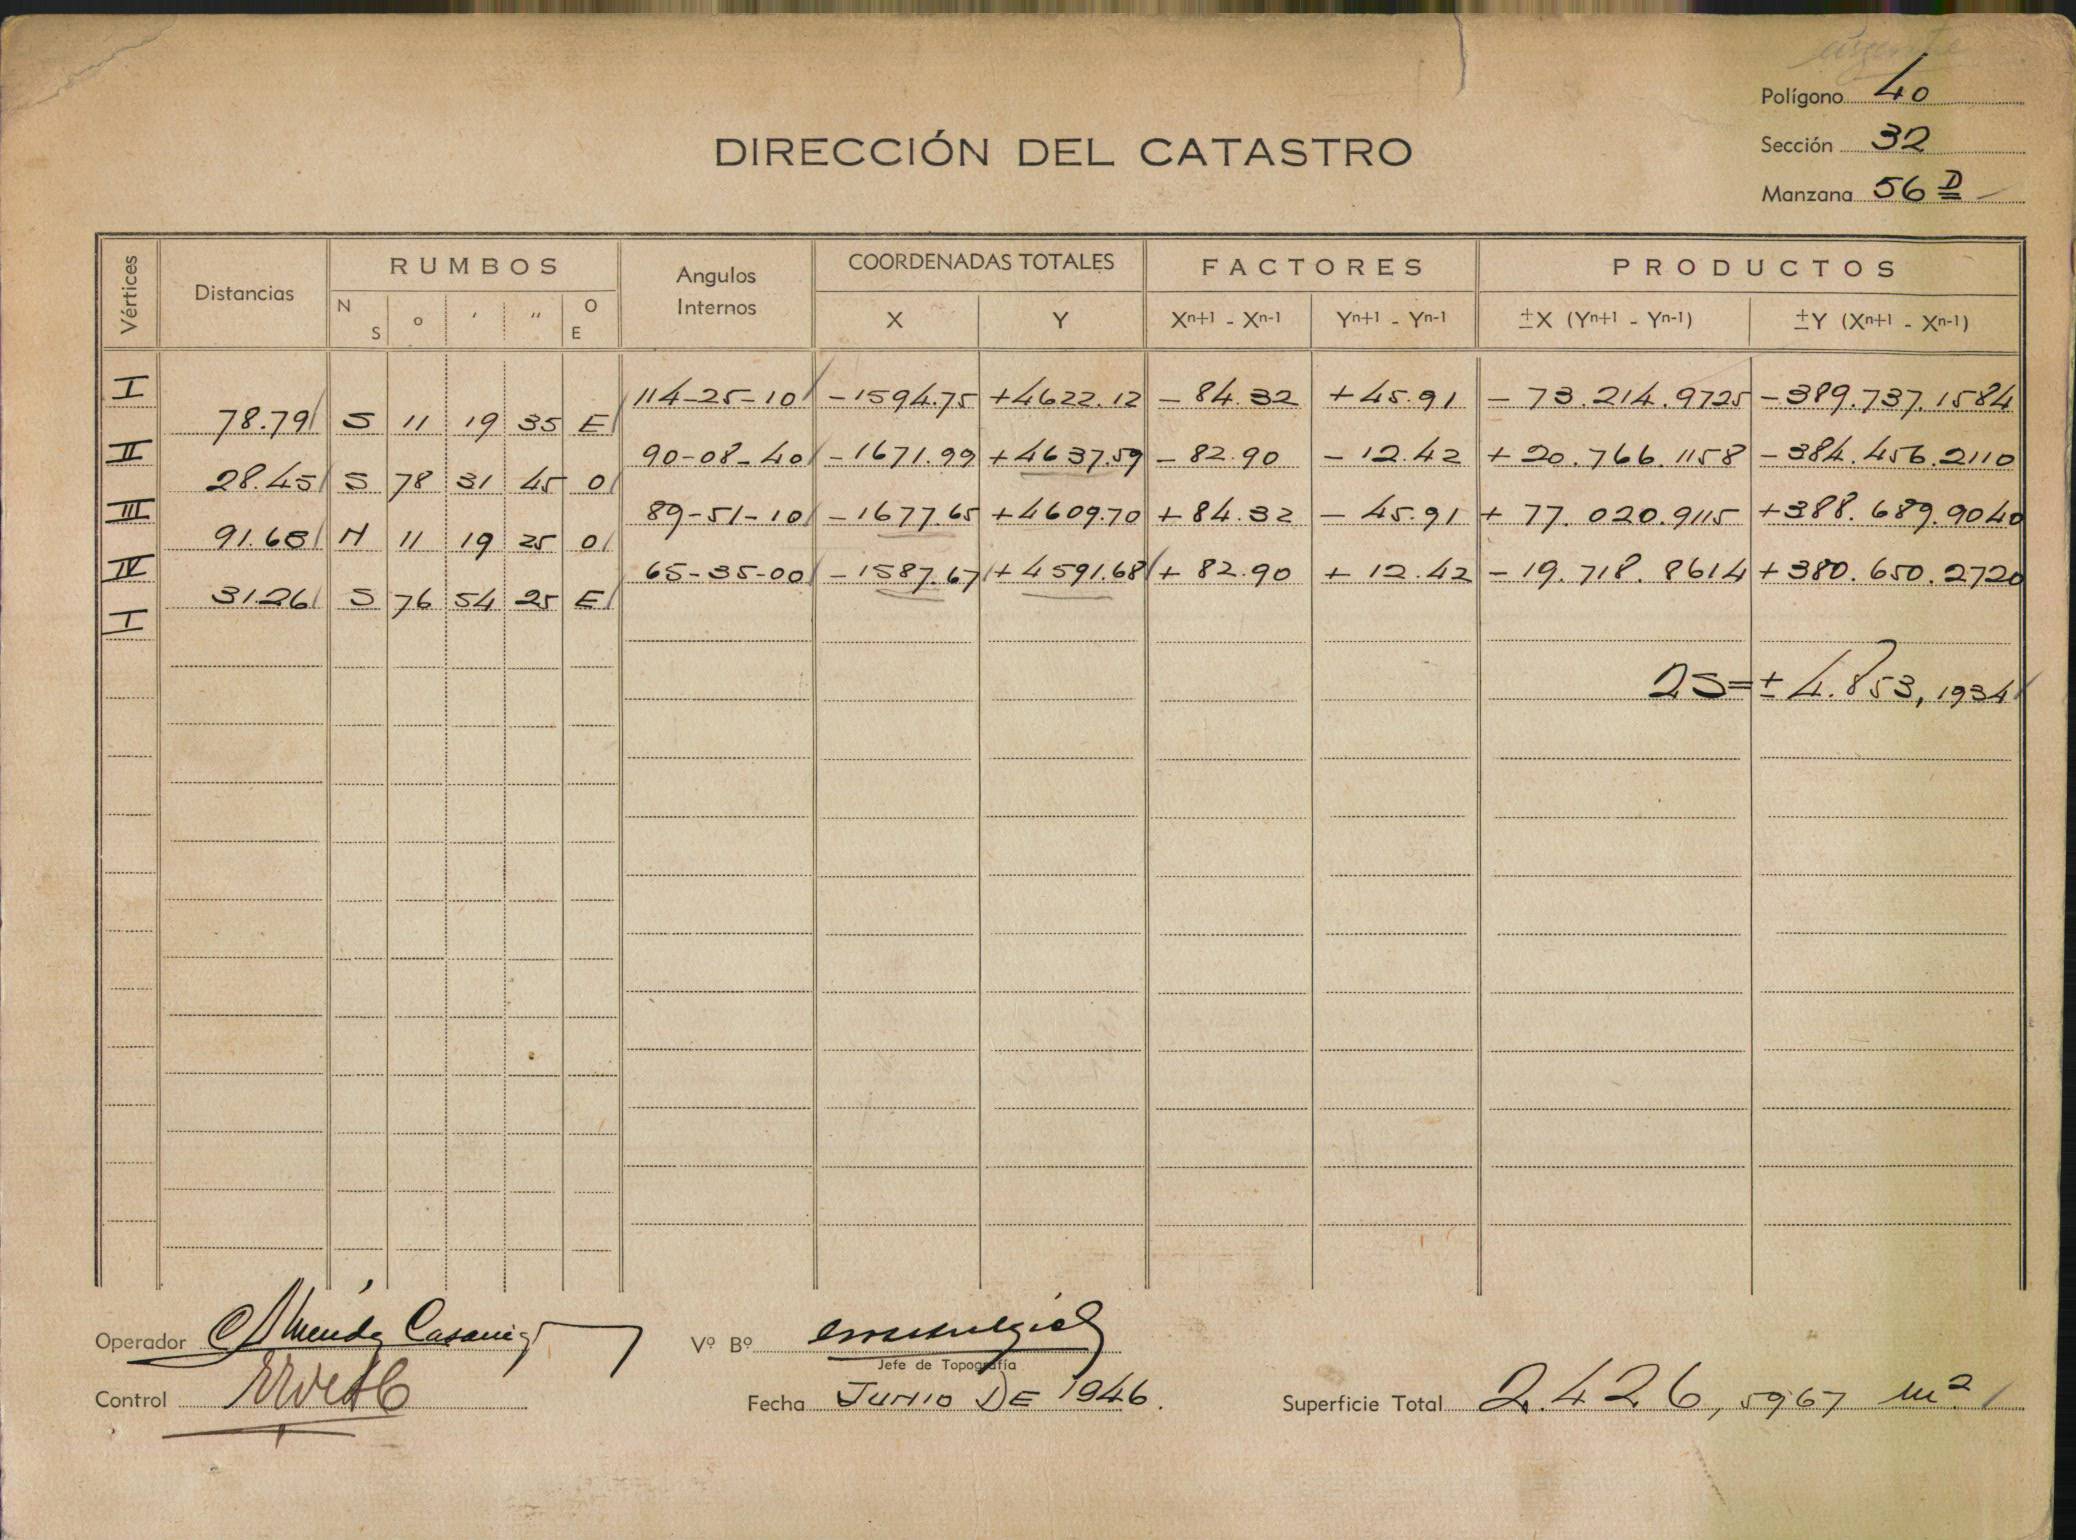 urgente
Polígono 40
DIRECCIÓN DEL CATASTRO
Sección 32
Manzana 56 D
Vértices Distancias RUMBOS Angulos Internos COORDENADAS TOTALES FACTORES PRODUCTOS
N S o ' " O E X Y Xn+1 - Xn-1 Yn+1 - Yn-1 ±X (Yn+1 - Yn-1) ±Y (Xn+1 - Xn-1)
I 114-25-10 -1594.75 +4622.12 - 84.32 + 45.91 - 73.214.9725 -389.737.1584
78.79 S 11 19 35 E
II 90-08-40 -1671.99 +4637.59 - 82.90 - 12.42 + 20.766.1158 -384.456.2110
28.45 S 78 31 45 O
III 89-51-10 -1677.65 +4609.70 + 84.32 - 45.91 + 77.020.9115 +388.689.9040
91.68 N 11 19 25 O
IV 65-35-00 -1587.67 +4591.68 + 82.90 + 12.42 -19.718.8614 +380.650.2720
31.26 S 76 54 25 E
I
2S= ± 4.853,1934
Operador
Vº Bº
Jefe de Topografía
Control
Fecha JUNIO DE 1946.
Superficie Total 2.426,5967 m2